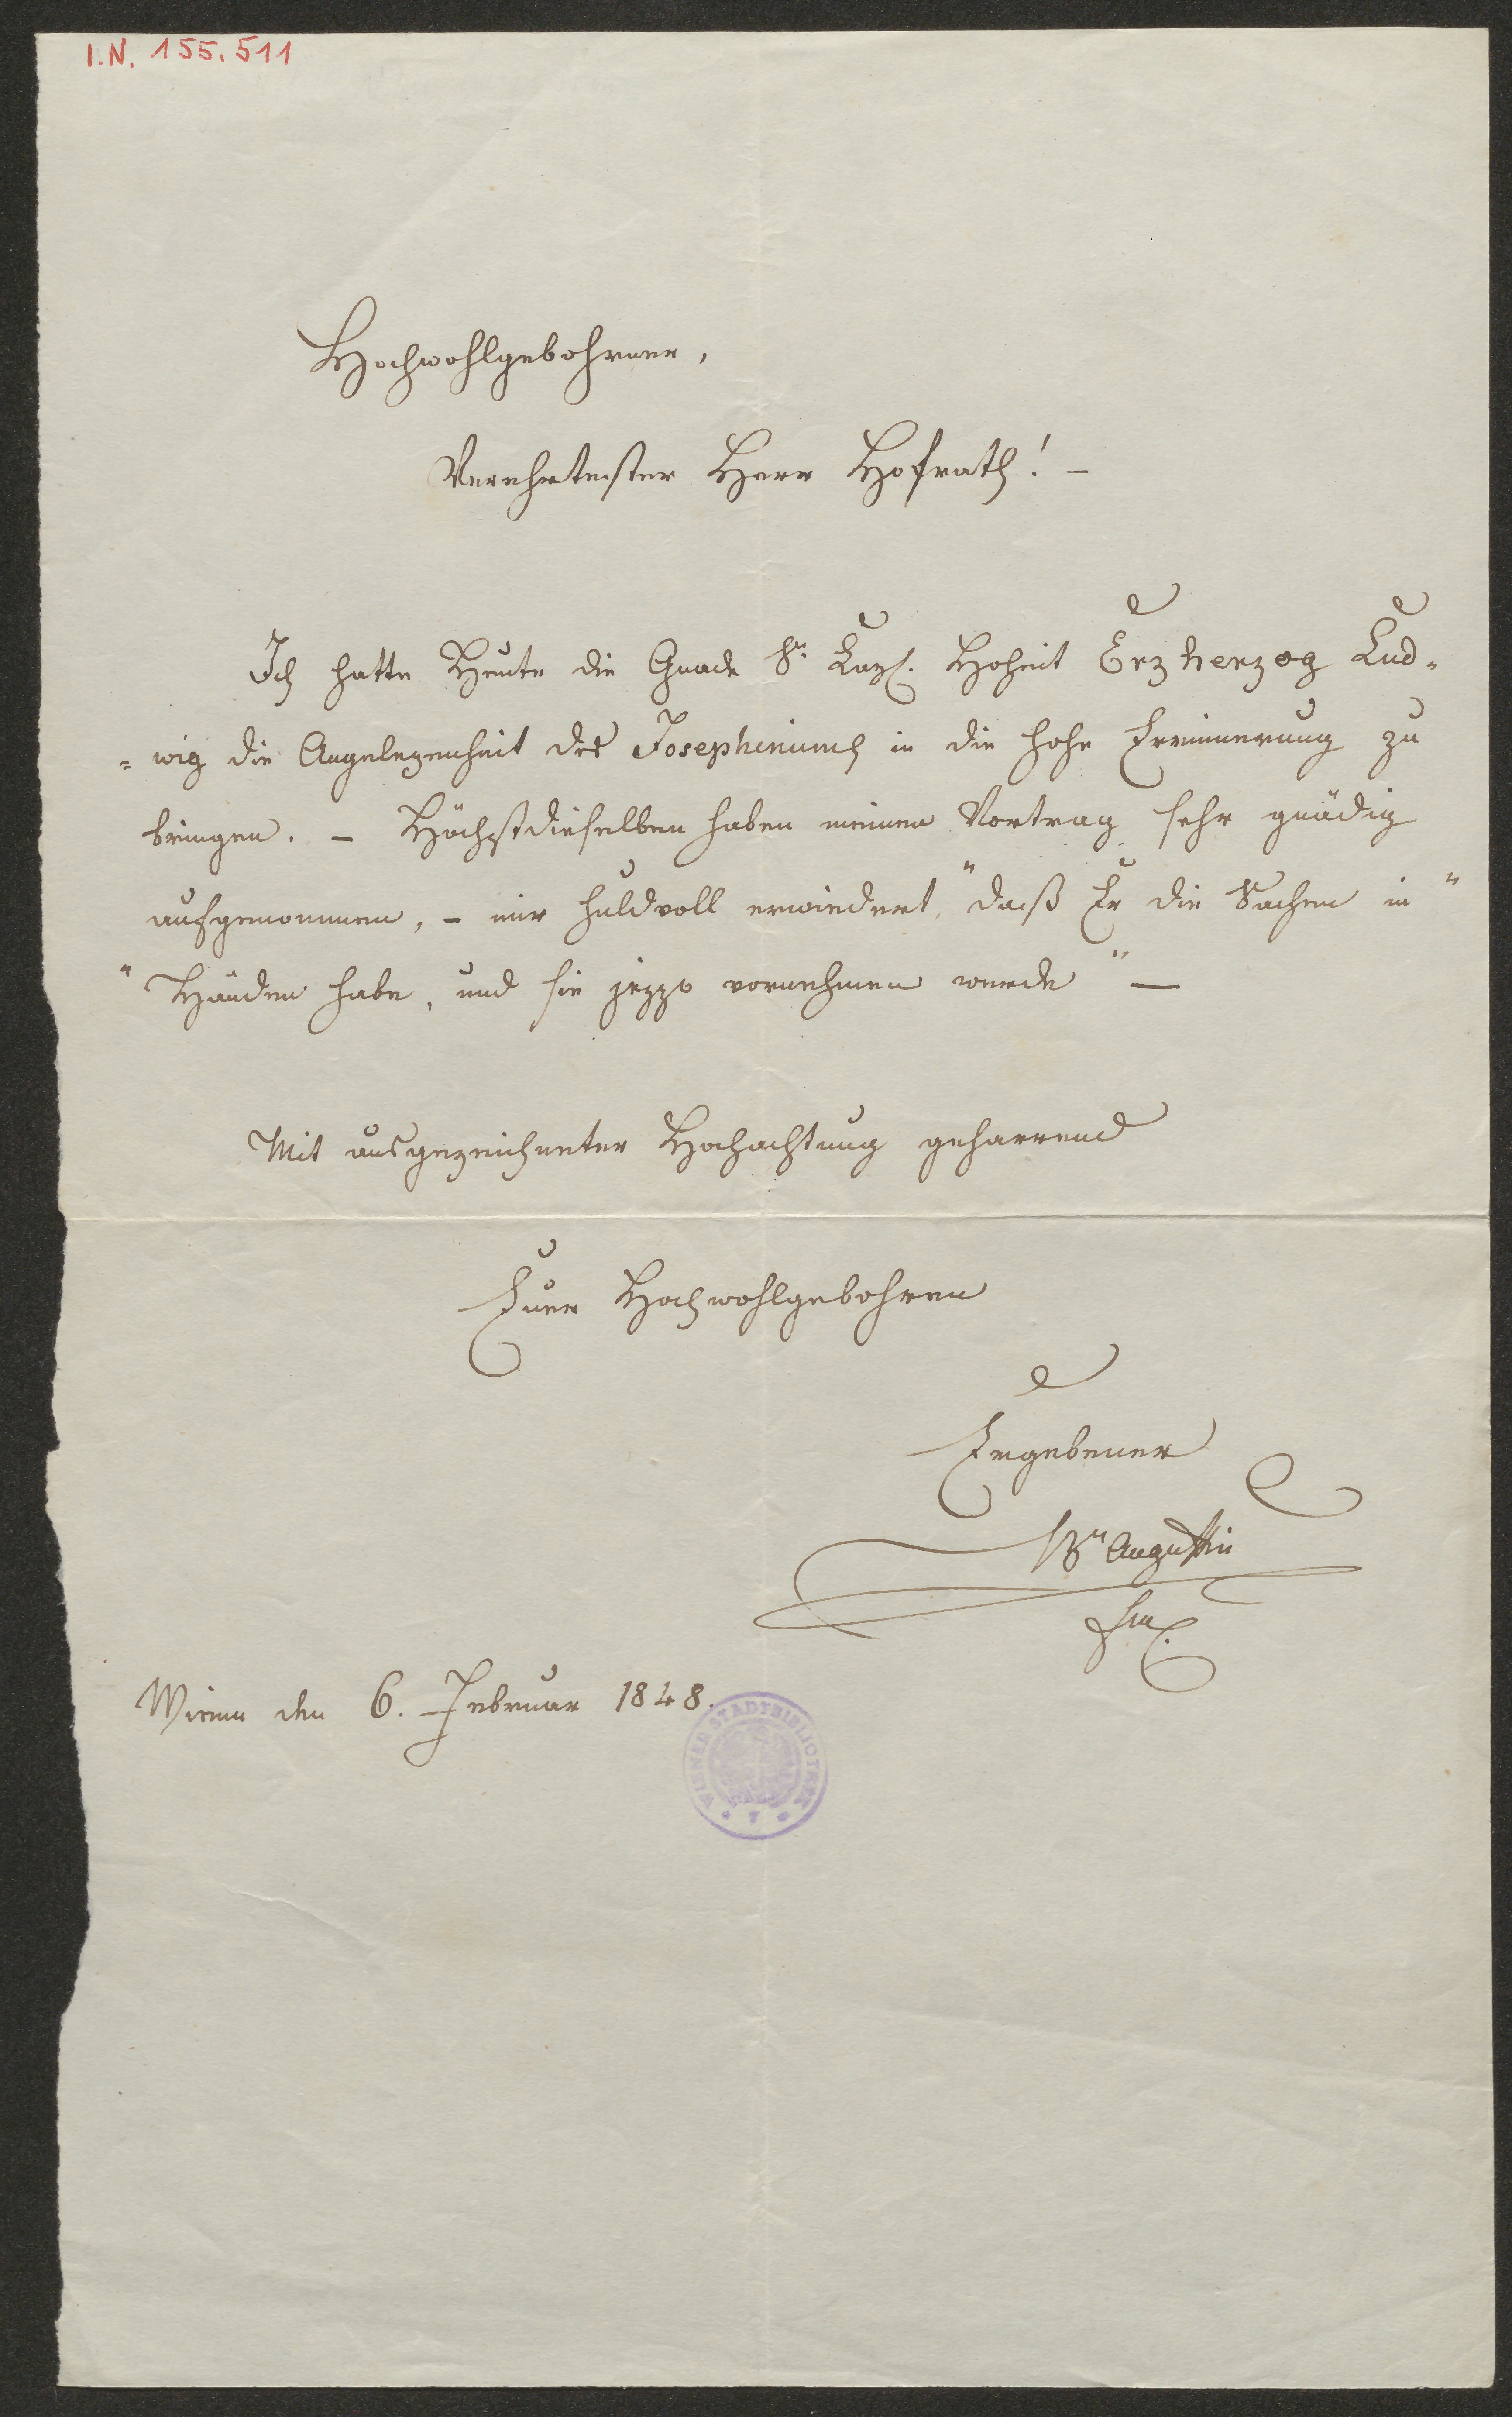 I.N. 155.511
Hochwohlgebohrner,
Verehrtester Herr Hofrath! –
Ich hatte Heute die Gnade Sr. Kays. Hoheit Erzherzog Lud=
=wig die Angelegenheit des Josephinums in die hohe Erinnerung zu
bringen. – Höchstdieselben haben meinen Vortrag sehr gnädig
aufgenommen, – mir huldvoll erwiedert, "daß Er die Sachen in"
"Händen habe, und sie jezzo vornehmen werde" –
Mit ausgezeichneter Hochachtung geharrend
Euer Hochwohlgebohren
Ergebener
Bn Augustin
Wienn den 6. Februar 1848.
WIENER STADTBIBLIOTHEK